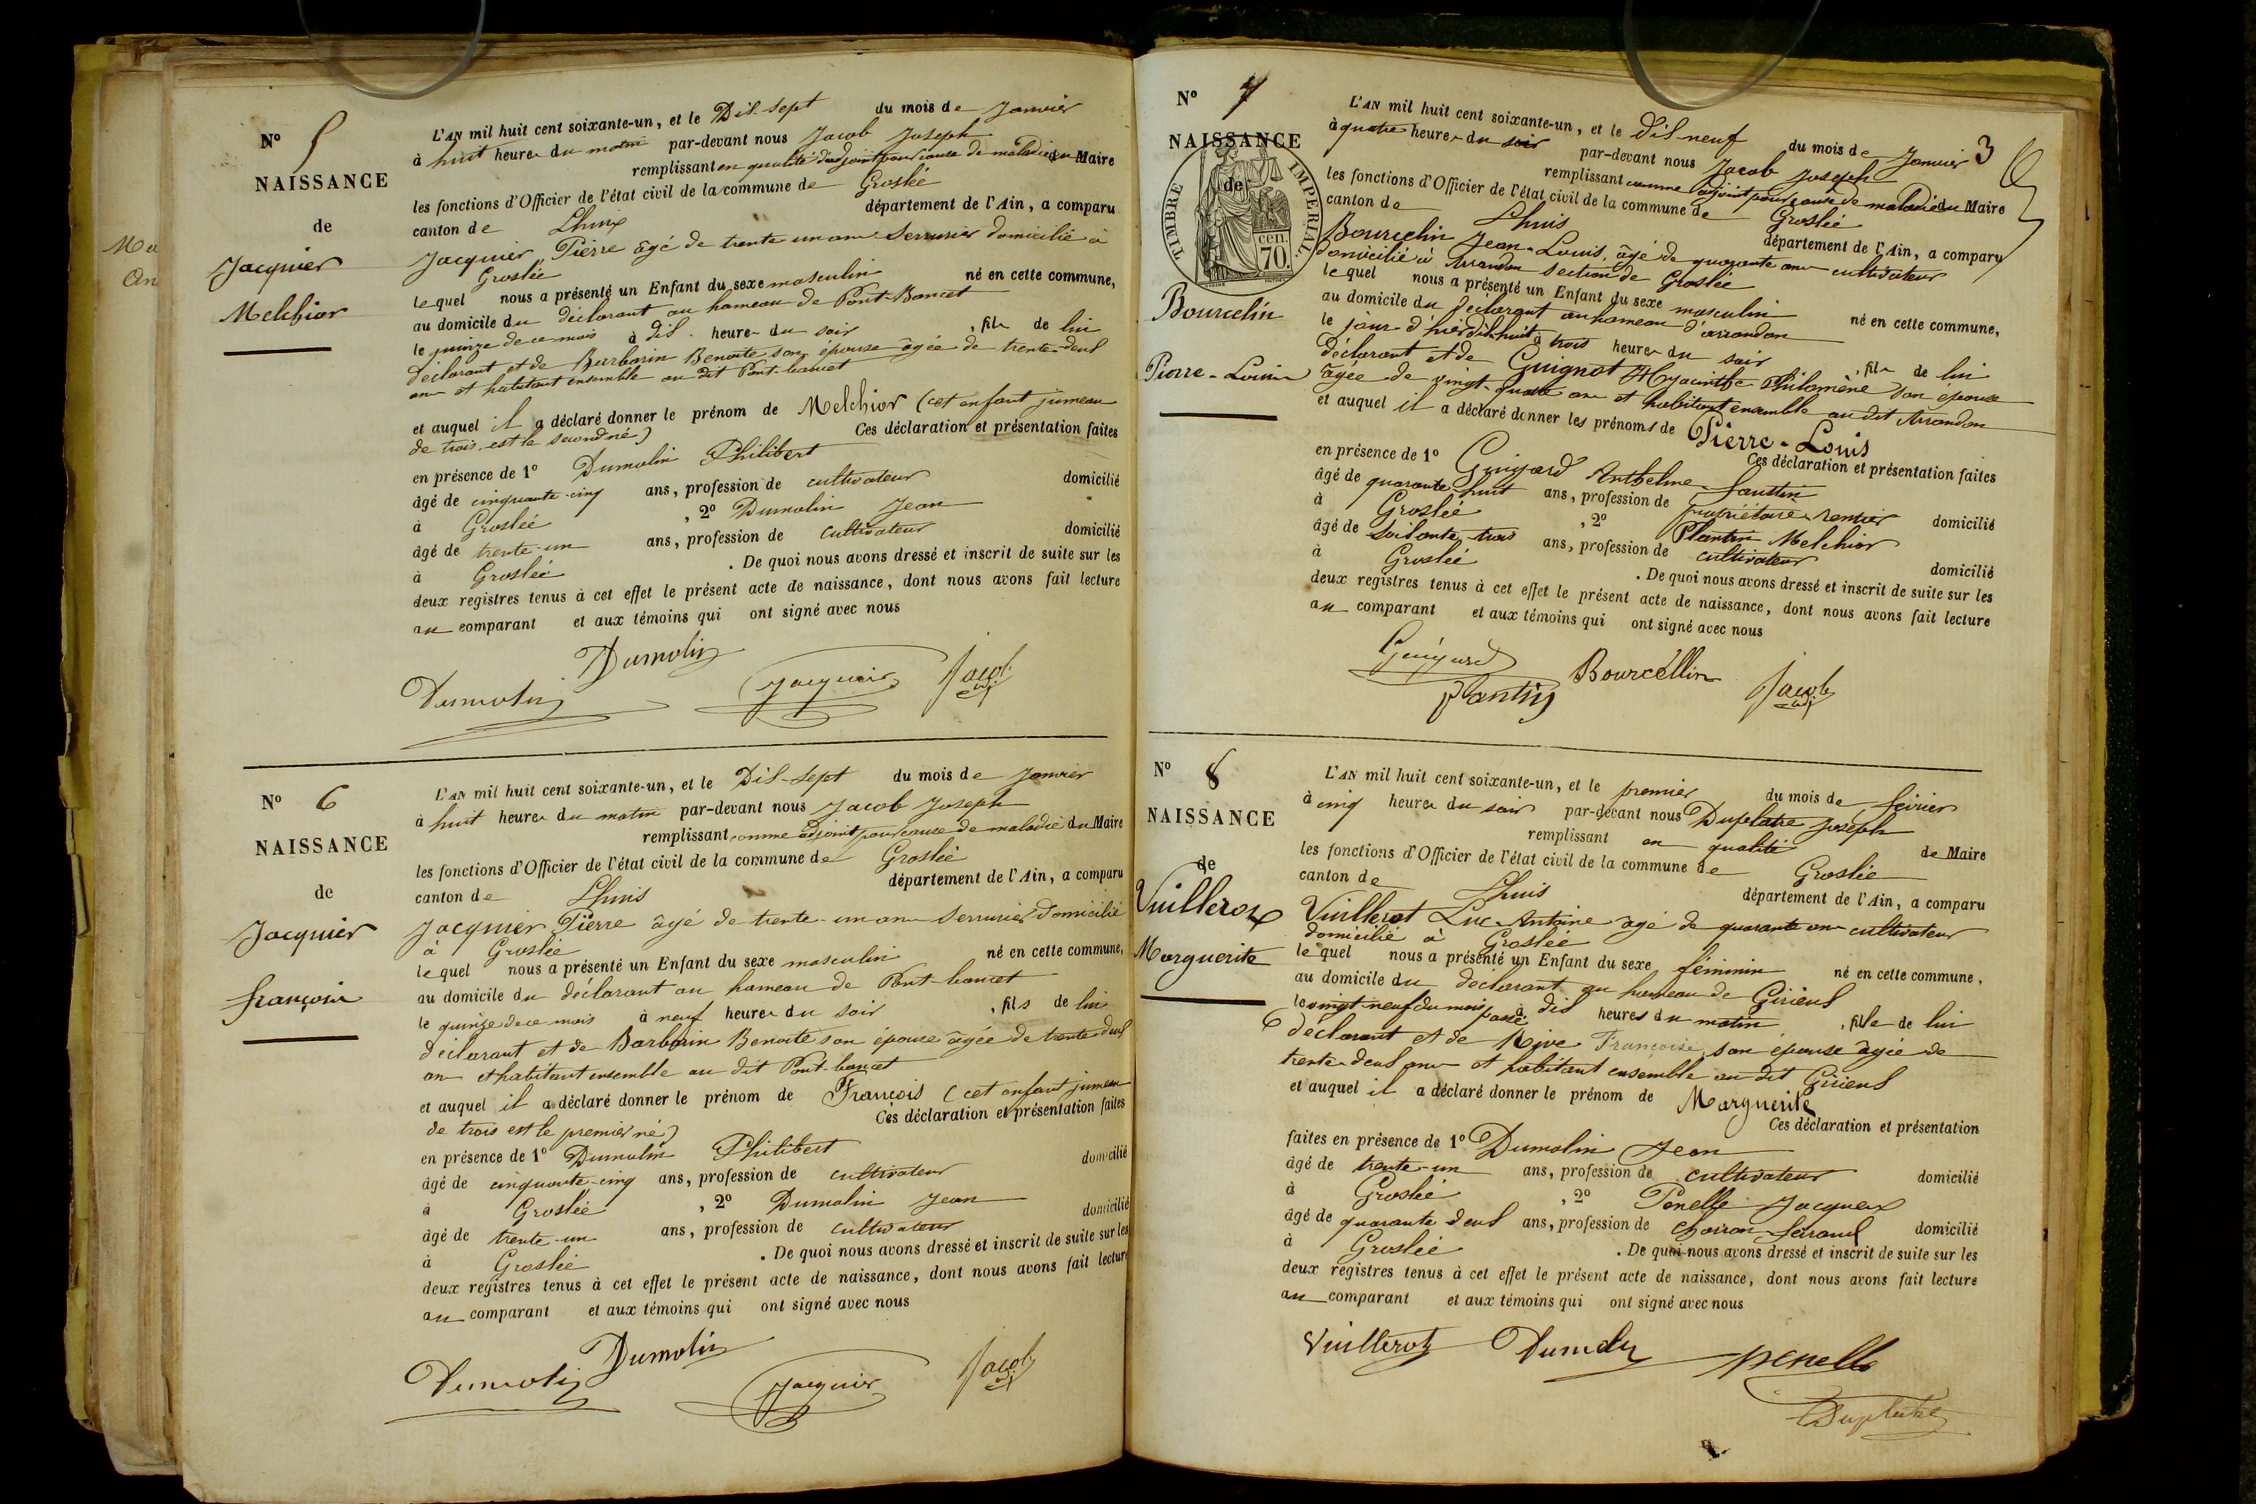 Ma
An
N° 5
NAISSANCE
de
Jacquier
Melchior
L'AN mil huit cent soixante-un, et le Dix-sept du mois de Janvier
à huit heures du matin par-devant nous Jacob Joseph
remplissant en qualité d'adjoint pour cause de maladie du Maire
les fonctions d'Officier de l'état civil de la commune de Groslée
canton de Lhuis département de l'Ain, a comparu
Jacquier Pierre âgé de trente un ans Serrurier domicilié à
Groslée
lequel nous a présenté un Enfant du sexe masculin né en cette commune,
au domicile du déclarant au hameau de Pont-Bancet
le quinze de ce mois à dix heures du soir, fils de lui
déclarant et de Barbarin Benoite son épouse âgée de trente-deux
ans et habitant ensemble au dit Pont-bancet
et auquel il a déclaré donner le prénom de Melchior (cet enfant jumeau
de trois est le second né) Ces déclaration et présentation faites
en présence de 1° Dumolin Philibert
âgé de cinquante-cinq ans, profession de cultivateur domicilié
à Groslée, 2° Dumolin Jean
âgé de trente-un ans, profession de cultivateur domicilié
à Groslée. De quoi nous avons dressé et inscrit de suite sur les
deux registres tenus à cet effet le présent acte de naissance, dont nous avons fait lecture
au comparant et aux témoins qui ont signé avec nous
Dumolin
Dumolin Jacquier Jacob adj
N° 6
NAISSANCE
de
Jacquier
françois
L'AN mil huit cent soixante-un, et le Dix-sept du mois de Janvier
à huit heures du matin par-devant nous Jacob Joseph
remplissant comme adjoint pour cause de maladie du Maire
les fonctions d'Officier de l'état civil de la commune de Groslée
canton de Lhuis département de l'Ain, a comparu
Jacquier Pierre âgé de trente-un ans Serrurier domicilié
à Groslée
lequel nous a présenté un Enfant du sexe masculin né en cette commune,
au domicile du déclarant au hameau de Pont-bancet
le quinze de ce mois à neuf heures du soir, fils de lui
déclarant et de Barbarin Benoite son épouse âgée de trente deux
ans et habitant ensemble au dit Pont-bancet
et auquel il a déclaré donner le prénom de François (cet enfant jumeau
de trois est le premier né) Ces déclaration et présentation faites
en présence de 1° Dumolin Philibert
âgé de cinquante-cinq ans, profession de cultivateur domicilié
à Groslée, 2° Dumolin Jean
âgé de trente-un ans, profession de cultivateur domicilié
à Groslée. De quoi nous avons dressé et inscrit de suite sur les
deux registres tenus à cet effet le présent acte de naissance, dont nous avons fait lecture
au comparant et aux témoins qui ont signé avec nous
Dumolin Dumolin Jacquier Jacob adj
3
N° 7
NAISSANCE
de
TIMBRE IMPERIAL
cen.
70.
Bourcelin
Pierre-Louis
L'AN mil huit cent soixante-un, et le dix-neuf du mois de Janvier
à quatre heures du soir par-devant nous Jacob Joseph
remplissant comme adjoint pour cause de maladie du Maire
les fonctions d'Officier de l'état civil de la commune de Groslée
canton de Lhuis département de l'Ain, a comparu
Bourcelin Jean-Louis, âgé de quarante ans cultivateur
domicilié à Arrandon section de Groslée
lequel nous a présenté un Enfant du sexe masculin né en cette commune,
au domicile du déclarant au hameau d'arrandon
le jour d'hier dix huit à trois heures du soir, fils de lui
déclarant et de Guignot Hyacinthe Philomène son épouse
âgée de vingt-quatre ans et habitant ensemble au dit Arrandon
et auquel il a déclaré donner les prénoms de Pierre-Louis
Ces déclaration et présentation faites
en présence de 1° Guigard Anthelme-Faustin
âgé de quarante-huit ans, profession de propriétaire rentier domicilié
à Groslée, 2° Plantin Melchior
âgé de soixante-trois ans, profession de cultivateur domicilié
à Groslée. De quoi nous avons dressé et inscrit de suite sur les
deux registres tenus à cet effet le présent acte de naissance, dont nous avons fait lecture
au comparant et aux témoins qui ont signé avec nous
Guigard Bourcellin
Plantin Jacob adj
N° 8
NAISSANCE
de
Vuillerot
Marguerite
L'AN mil huit cent soixante-un, et le premier du mois de février
à cinq heures du soir par-devant nous Duplatre Joseph
remplissant en qualité de Maire
les fonctions d'Officier de l'état civil de la commune de Groslée
canton de Lhuis département de l'Ain, a comparu
Vuillerot Luc-Antoine âgé de quarante ans cultivateur
domicilié à Groslée
lequel nous a présenté un Enfant du sexe féminin né en cette commune,
au domicile du déclarant au hameau de Giriens
le vingt-neuf du mois passé à dix heures du matin, fille de lui
déclarant et de Rive Françoise son épouse âgée de
trente-deux ans et habitant ensemble au dit Giriens
et auquel il a déclaré donner le prénom de Marguerite
Ces déclaration et présentation
faites en présence de 1° Dumolin Jean
âgé de trente-un ans, profession de cultivateur domicilié
à Groslée, 2° Penelle Jacques
âgé de quarante deux ans, profession de charron-ferrand domicilié
à Groslée. De quoi nous avons dressé et inscrit de suite sur les
deux registres tenus à cet effet le présent acte de naissance, dont nous avons fait lecture
au comparant et aux témoins qui ont signé avec nous
Vuillerot Dumolin penelle
Duplatre